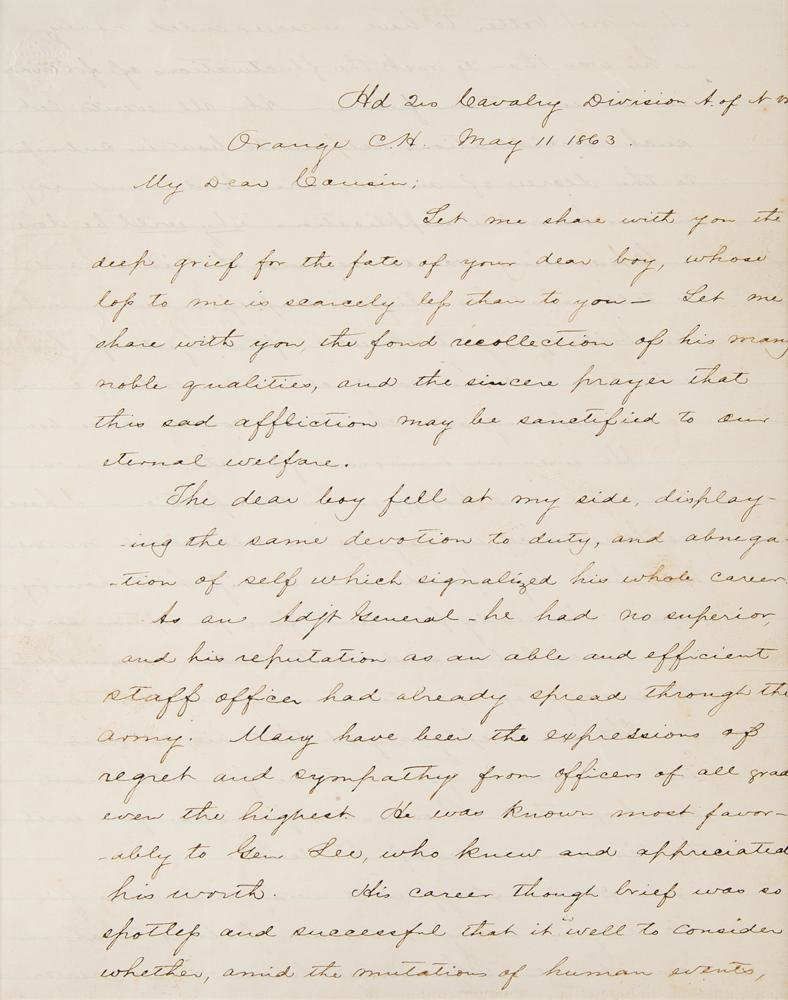 Hd Qrs Cavalry Division A. of N. V
Orange C.H. May 11 1863.
My Dear Cousin;
Let me share with you the
deep grief for the fate of your dear boy, whose
loss to me is scarcely less than to you — Let me
share with you the fond recollection of his many
noble qualities, and the sincere prayer that
this sad affliction may be sanctified to our
eternal welfare.
The dear boy fell at my side, display-
-ing the same devotion to duty, and abnega-
-tion of self which signalized his whole career.
As an Adjt General - he had no superior,
and his reputation as an able and efficient
staff officer had already spread through the
army. Many have been the expressions of
regret and sympathy from officers of all grad
even the highest. He was known most favor-
-ably to Gen Lee, who knew and appreciated
his worth. His career though brief was so
spotless and successful that it is well to consider
whether, amid the mutations of human events,